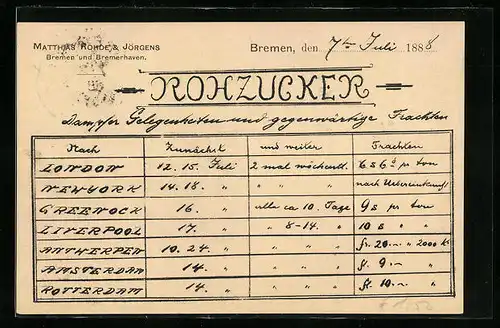 MATTHIAS ROHDE & JÖRGENS
Bremen und Bremerhaven.
Bremen, den 7ten Juli 1888
ROHZUCKER
Dampfer Gelegenheiten und gegenwärtige Frachten
Nach Zunächst und weiter Frachten
LONDON 12. 15. Juli 2 mal wöchentl. 6 s 6 d pr ton
NEWYORK 14. 18. " " " " nach Uebereinkunft
GREENOCK 16. " alle ca 10. Tage 9 s pr ton
LIVERPOOL 17. " " 8-14. " 10 s " "
ANTWERPEN 10. 24. " " " " fr. 20.– " 2000 K
AMSTERDAM 14. " " " " fl. 9.– "
ROTTERDAM 14. " " " " fl. 10.– "